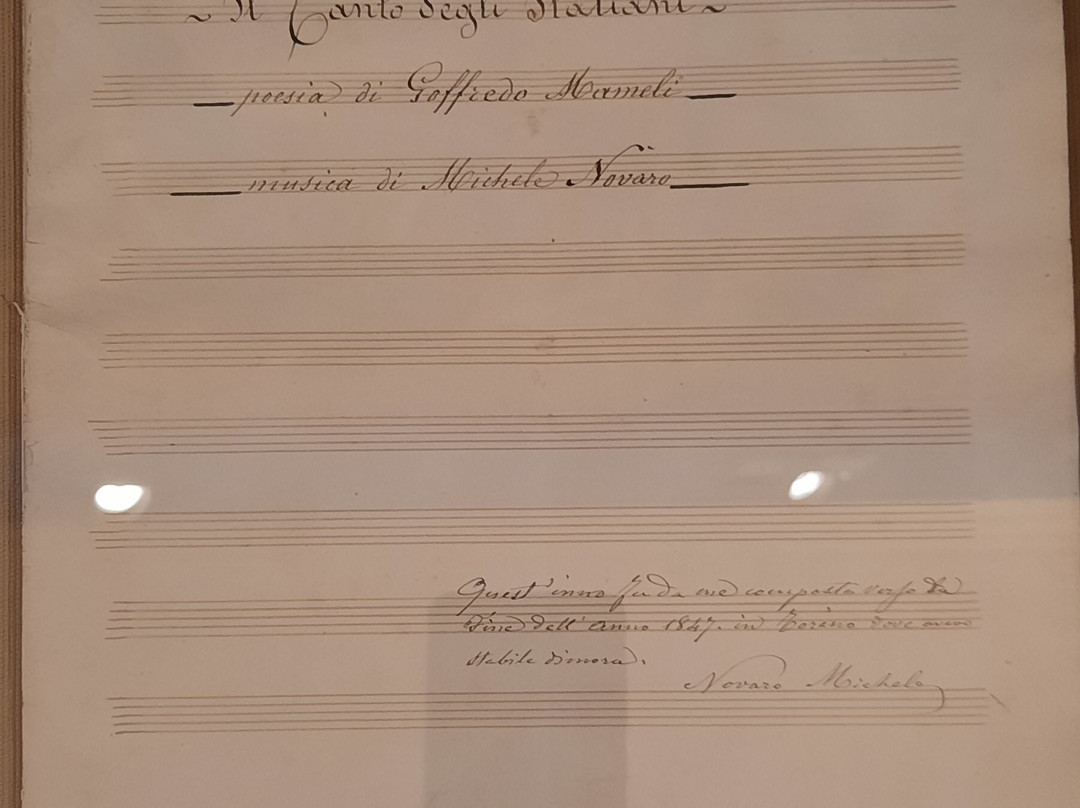 ~ Il Canto degli Italiani ~
poesia di Goffredo Mameli
musica di Michele Novaro
Quest'inno fu da me composto verso la
fine dell'anno 1847. in Torino dove avevo
stabile dimora.
Novaro Michele